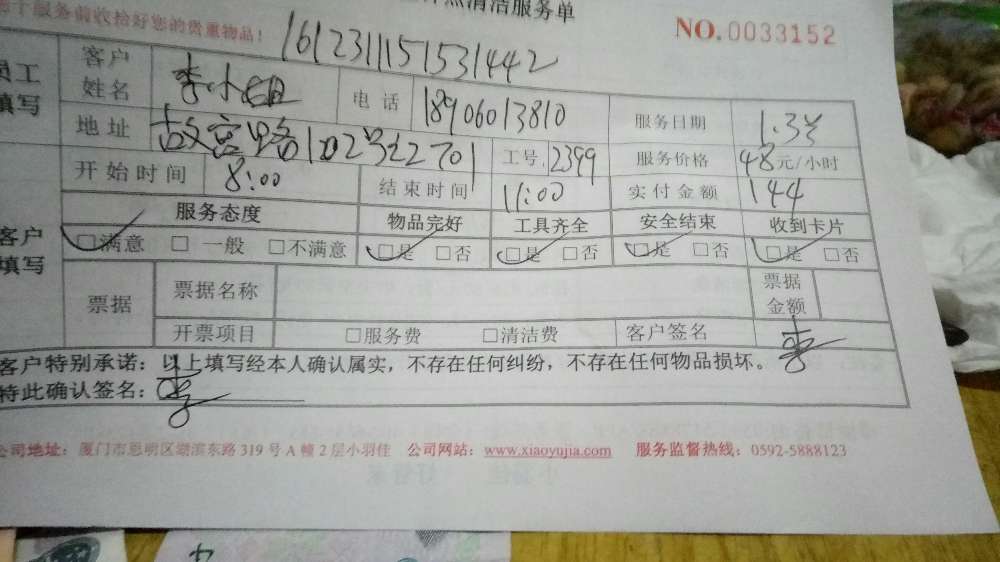 服务前收拾好您的贵重物品！
清洁服务单
NO.0033152
1612311151531442
员工填写 客户姓名 李小姐 电话 18906013810 服务日期 1.3
地址 故宫路102号2701 工号 2399 服务价格 48元/小时
开始时间 8:00 结束时间 11:00 实付金额 144
客户填写 服务态度 物品完好 工具齐全 安全结束 收到卡片
□满意 □一般 □不满意 □是 □否 □是 □否 □是 □否 □是 □否
票据 票据名称 票据金额
开票项目 □服务费 □清洁费 客户签名 李
客户特别承诺：以上填写经本人确认属实，不存在任何纠纷，不存在任何物品损坏。
特此确认签名：李
公司地址：厦门市思明区湖滨东路319号A幢2层小羽佳 公司网站：www.xiaoyujia.com 服务监督热线：0592-5888123